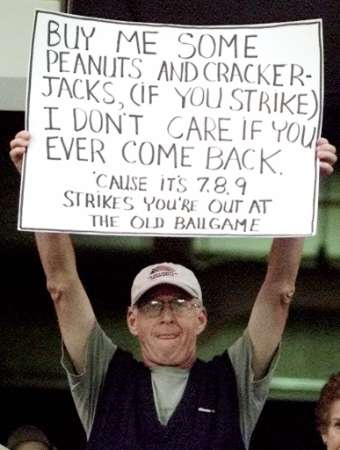 BUY ME SOME
PEANUTS AND CRACKER-
JACKS, (IF YOU STRIKE)
I DON'T CARE IF YOU
EVER COME BACK.
'CAUSE IT'S 7.8.9
STRIKES YOU'RE OUT AT
THE OLD BALLGAME